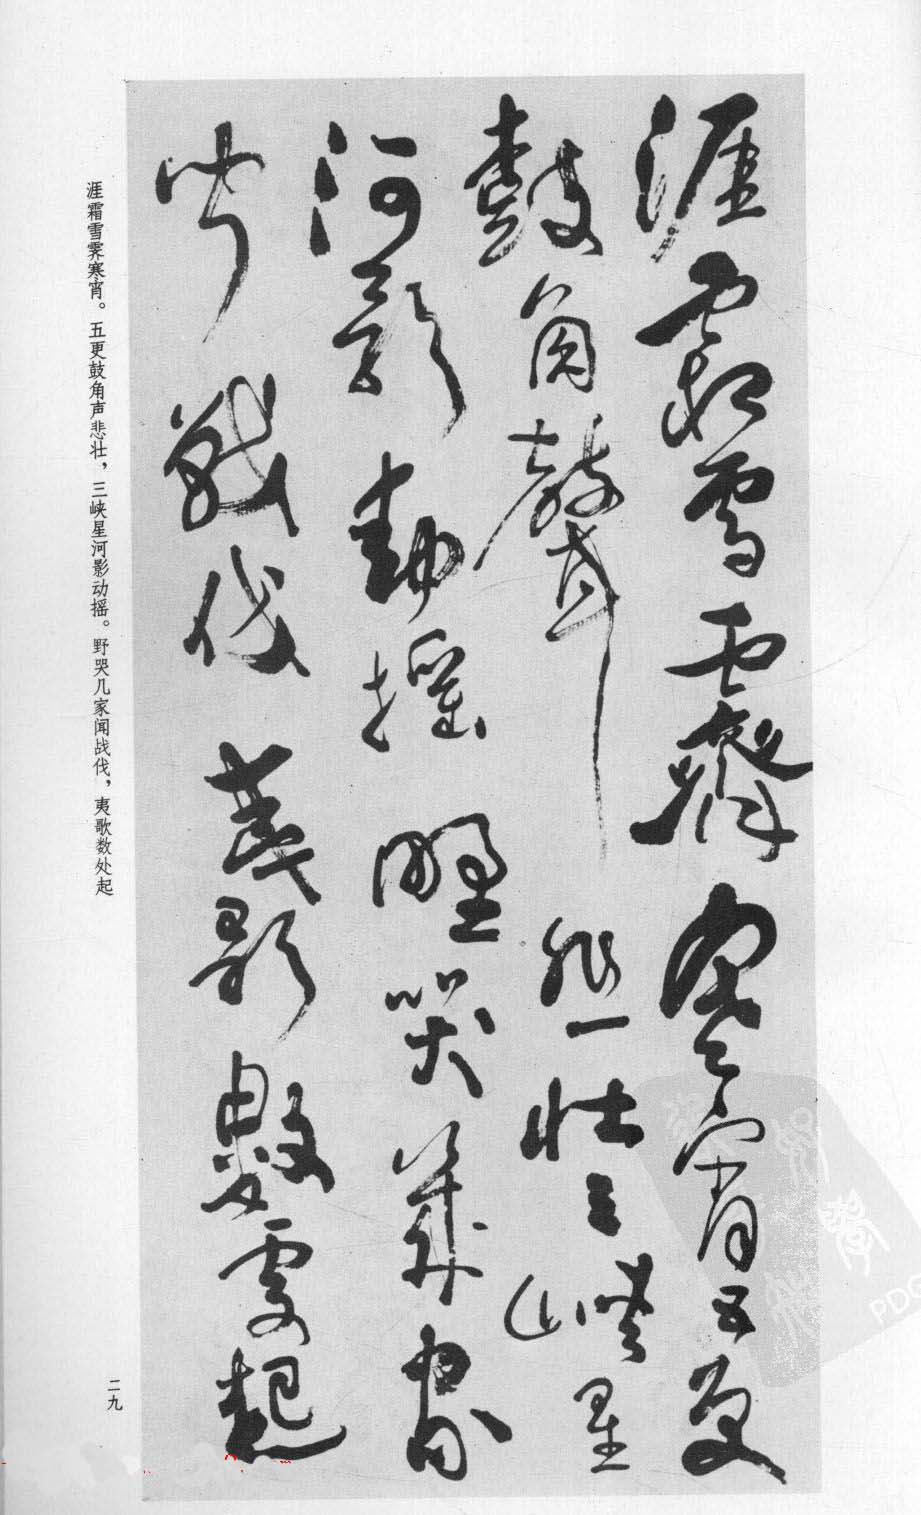 涯霜雪霽寒宵五更
鼓角聲悲壯三峽星
河影動搖野哭幾家
聞戰伐夷歌數處起
涯霜雪霁寒宵。五更鼓角声悲壮，三峡星河影动摇。野哭几家闻战伐，夷歌数处起
二九